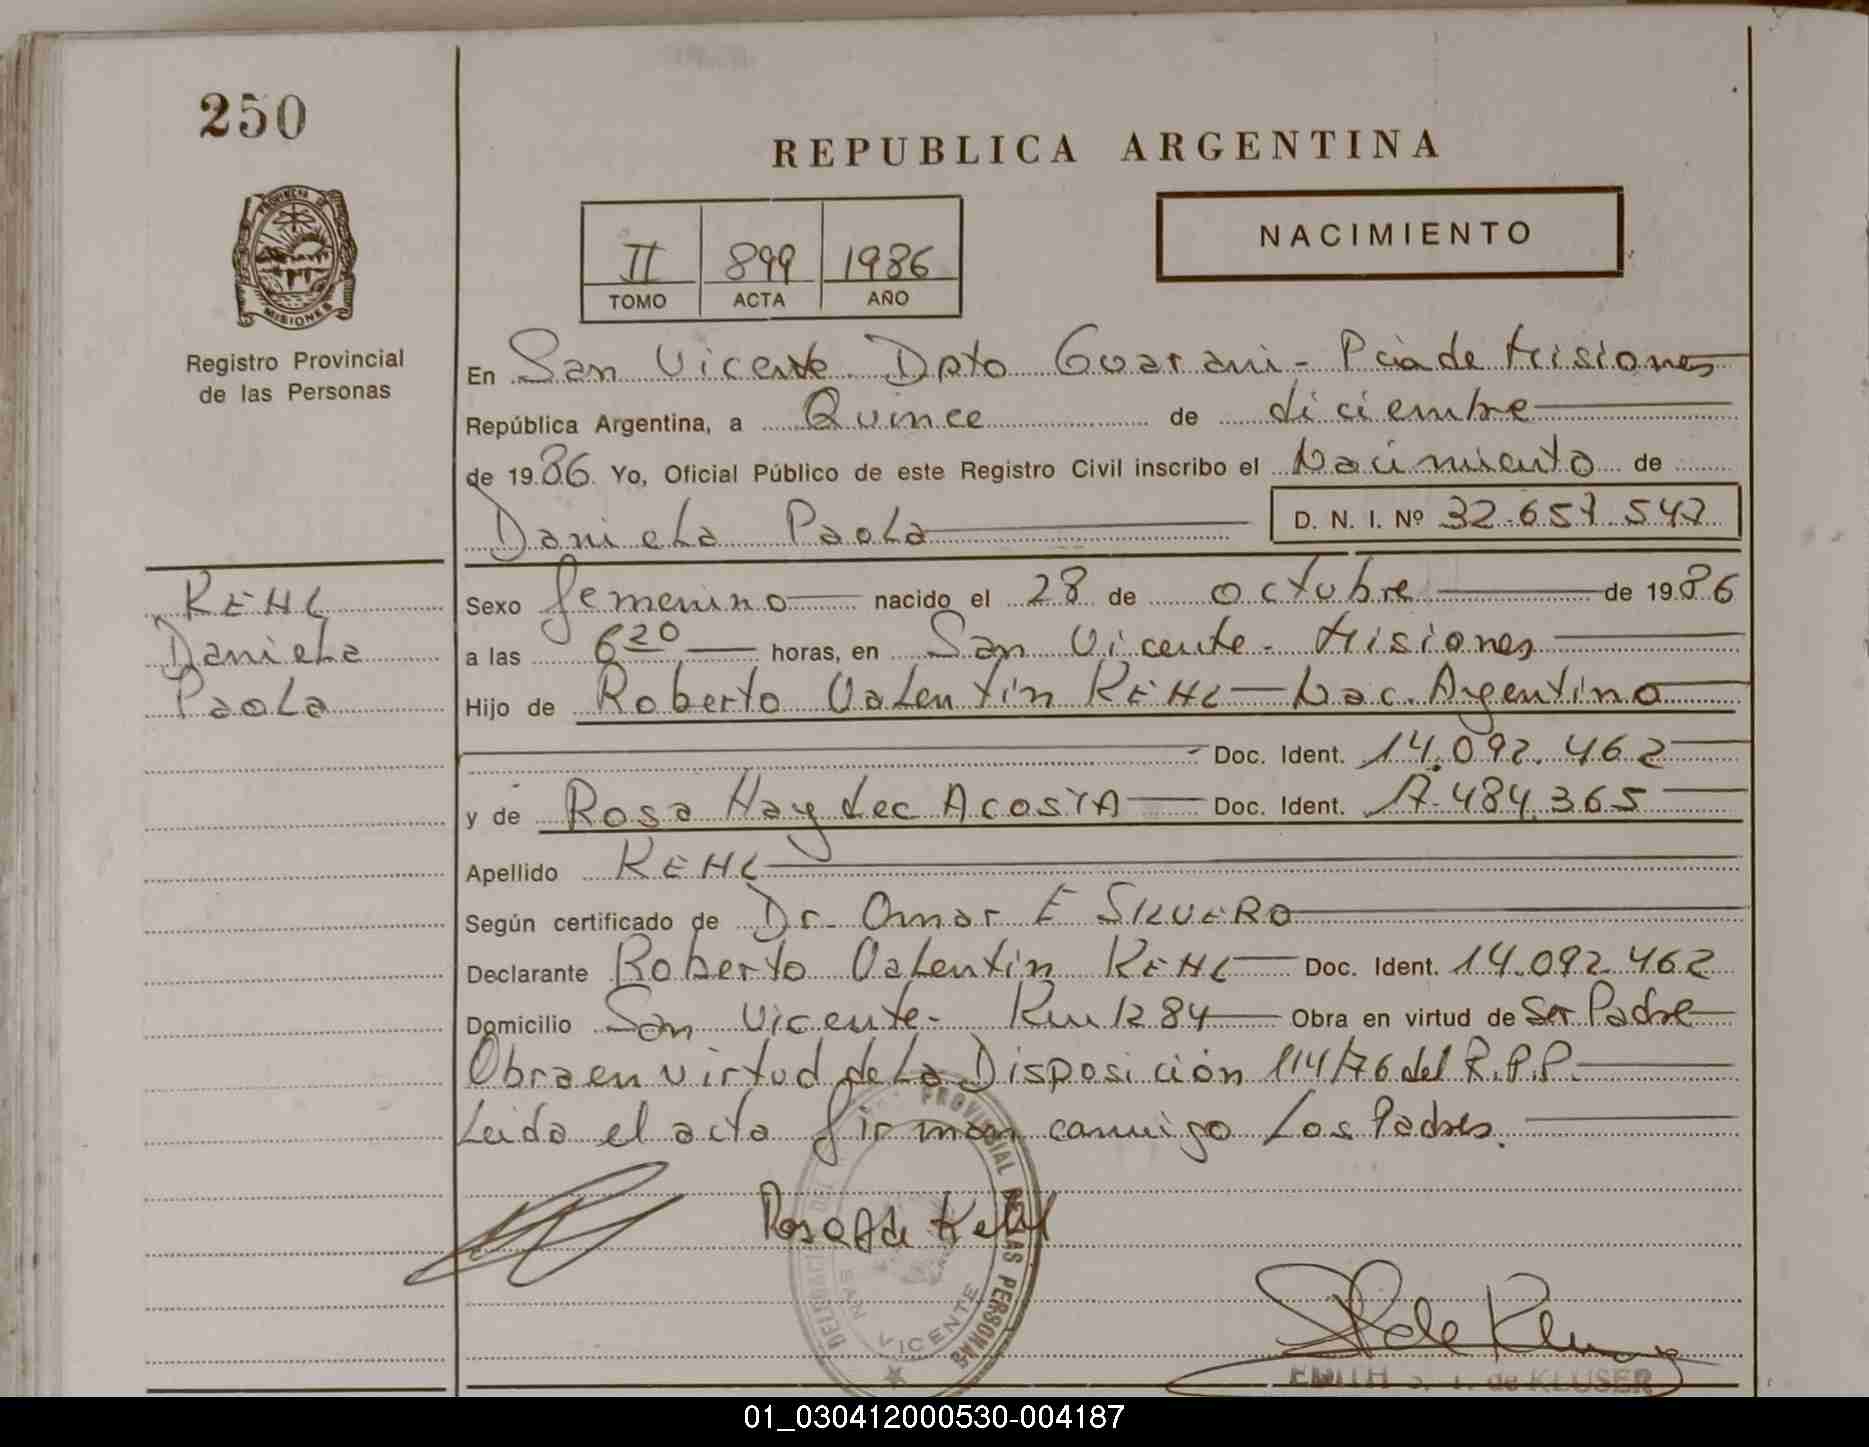 250
REPUBLICA ARGENTINA
NACIMIENTO
II 899 1986
TOMO ACTA AÑO
PROVINCIA DE
MISIONES
Registro Provincial
de las Personas
En San Vicente Dpto Guarani - Pcia de Misiones
República Argentina, a Quince de diciembre
de 1986 Yo, Oficial Público de este Registro Civil inscribo el Nacimiento de
Daniela Paola D. N. I. Nº 32.657.547
KEHL
Daniela
Paola
Sexo femenino nacido el 28 de octubre de 1986
a las 6 20 horas, en San Vicente - Misiones
Hijo de Roberto Valentin KEHL - Nac. Argentino
Doc. Ident. 14.092.462
y de Rosa Haydee ACOSTA Doc. Ident. 17.484.365
Apellido KEHL
Según certificado de Dr. Omar E SILVERO
Declarante Roberto Valentin KEHL Doc. Ident. 14.092.462
Domicilio San Vicente - Km 1284 Obra en virtud de Ser Padre
Obra en virtud de la Disposición 114/76 del R.P.P.
Leida el acta firman conmigo Los Padres.
Rosa A de Kehl
PROVINCIAL DE LAS PERSONAS
SAN VICENTE
EDITH de KLUSER
01_030412000530-004187